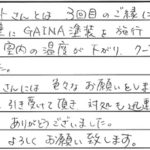 トさんとは 3回目のご縁に
達にGAINA塗装を施行
室内の温度が下がり、クー
た。
さんには色々なお願いをしま
引き受けて頂き 対処も迅速
ありがとうございました。
よろしくお願い致します。